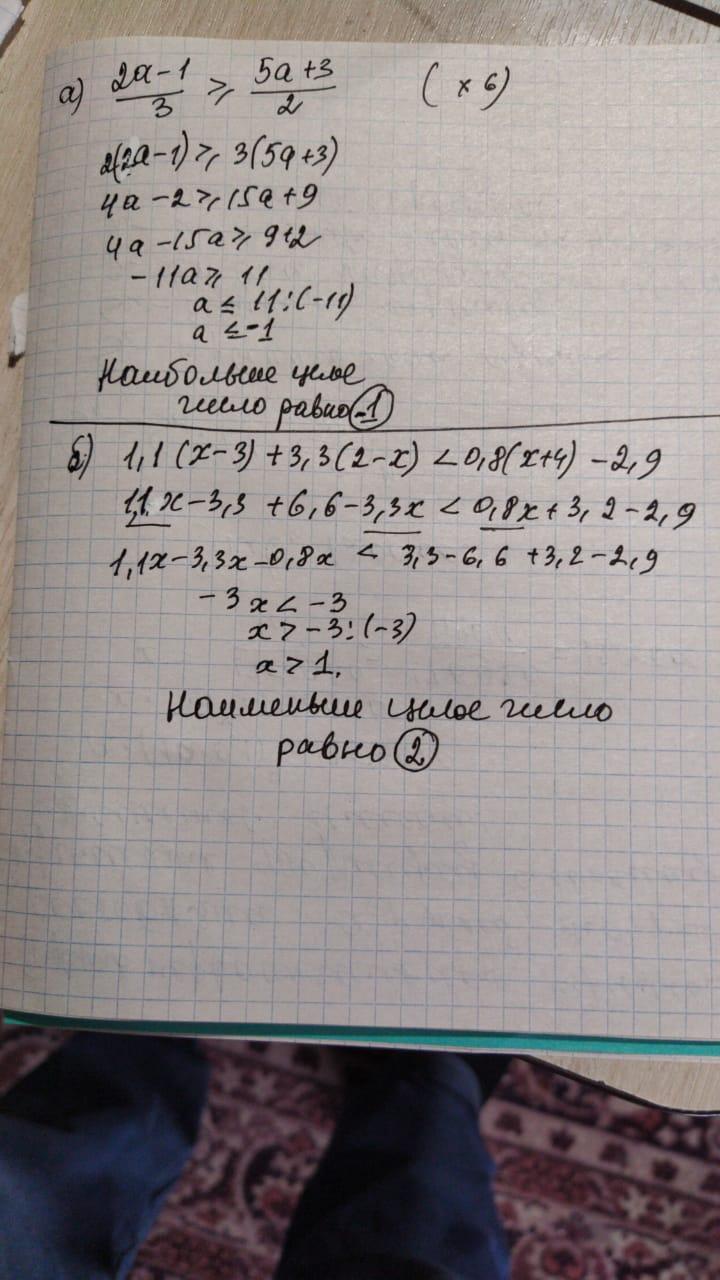 а) (2a-1)/3 ≥ (5a+3)/2 ( × 6)
2(2a-1) ≥ 3(5a+3)
4a-2 ≥ 15a+9
4a-15a ≥ 9+2
-11a ≥ 11
a ≤ 11:(-11)
a ≤ -1
Наибольше целое
число равно -1
б) 1,1(x-3)+3,3(2-x) < 0,8(x+4) - 2,9
1,1x-3,3 +6,6-3,3x < 0,8x+3,2-2,9
1,1x-3,3x-0,8x < 3,3-6,6 +3,2-2,9
-3x < -3
x > -3:(-3)
x > 1.
Наименьше целое число
равно 2